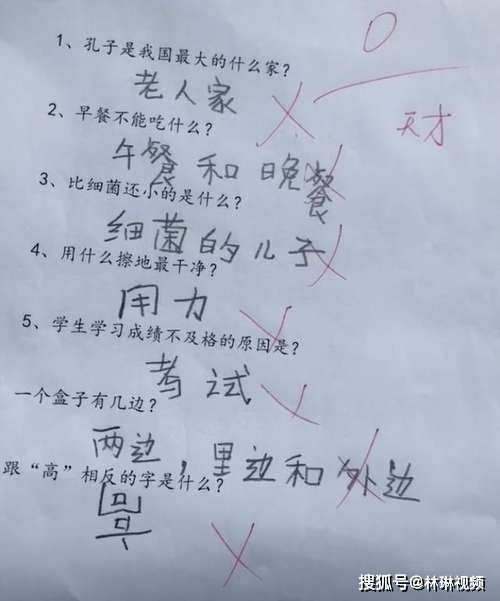 1、孔子是我国最大的什么家?
老人家
2、早餐不能吃什么?
午餐和晚餐
3、比细菌还小的是什么?
细菌的儿子
4、用什么擦地最干净?
用力
5、学生学习成绩不及格的原因是?
考试
一个盒子有几边?
两边,里边和外边
跟“高”相反的字是什么?
0
天才
搜狐号@林琳视频